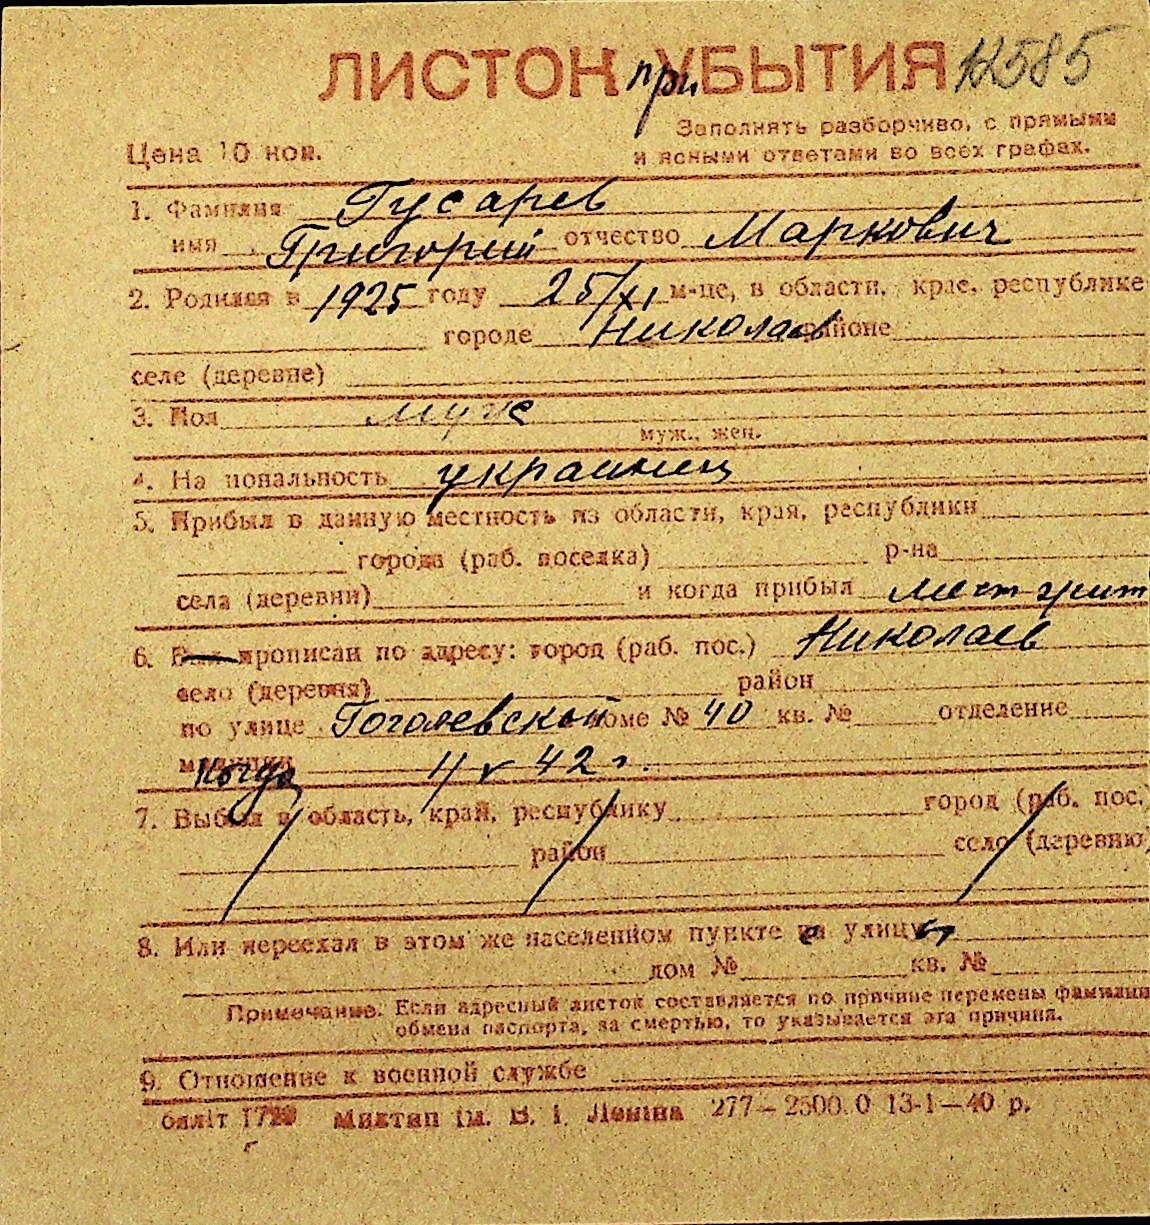 ЛИСТОК при УБЫТИЯ 12585
Заполнять разборчиво, с прямыми
Цена 10 коп. и ясными ответами во всех графах.
1. Фамилия Гусарев
имя Григорий отчество Маркович
2. Родился в 1925 году 25/XI м-це, в области, крае, республике
городе Николаев районе
селе (деревне)
3. Пол муж
муж., жен.
4. Национальность украинец
5. Прибыл в данную местность из области, края, республики
города (раб. поселка) р-на
села (деревни) и когда прибыл мест жит
6. Был прописан по адресу: город (раб. пос.) Николаев
село (деревня) район
по улице Гоголевской доме № 40 кв. № отделение
милиции когда 4 V 42 г.
7. Выбыл в область, край, республику город (раб. пос.)
район село (деревню)
8. Или переехал в этом же населенном пункте на улицу
дом № кв. №
Примечание. Если адресный листок составляется по причине перемены фамилии
обмена паспорта, за смертью, то указывается эта причина.
9. Отношение к военной службе
Миктип ім. В. І. Леніна 277—2500.0 13-1—40 р.